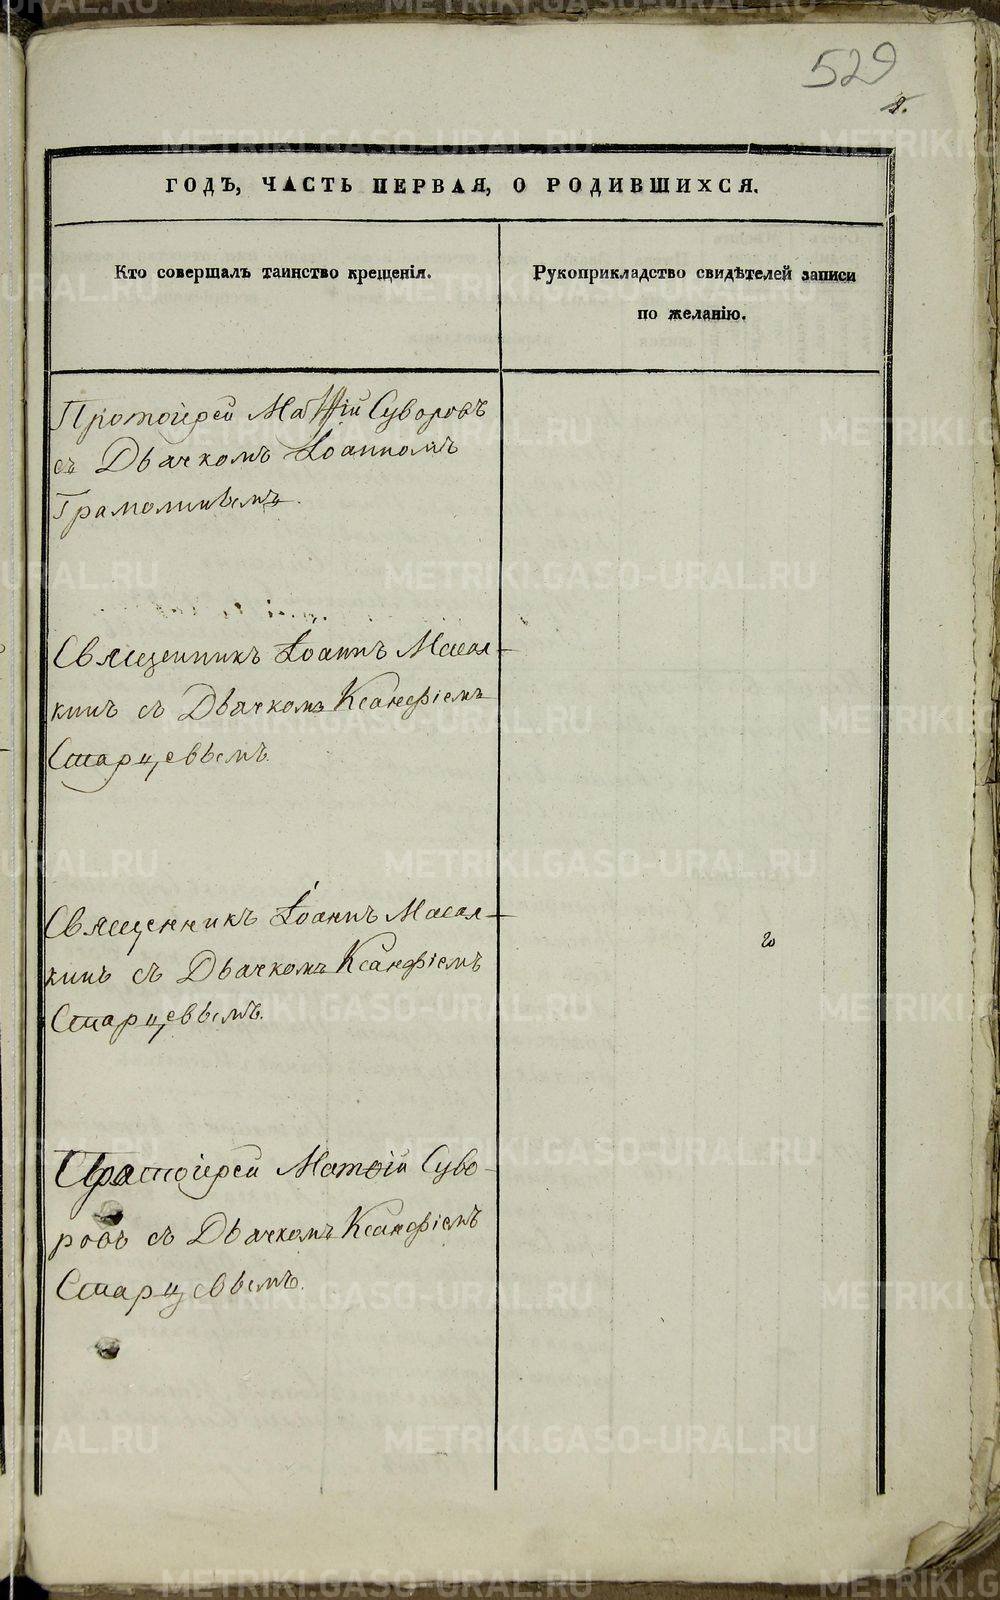 529
2.
ГОДЪ, ЧАСТЬ ПЕРВАЯ, О РОДИВШИХСЯ.
Кто совершалъ таинство крещенія.
Рукоприкладство свидѣтелей записи
по желанію.
Протоіерей Матѳій Суворовъ
съ Дьячкомъ Іоанномъ
Священникъ Іоаннъ Масал-
кинъ съ Дьячкомъ Ксанфіемъ
Старцевымъ.
Священникъ Іоаннъ Масал-
кинъ съ Дьячкомъ Ксанфіемъ
Старцевымъ.
Протоіерей Матѳій Суво-
ровъ съ Дьячкомъ Ксанфіемъ
Старцевымъ.
METRIKI.GASO-URAL.RU